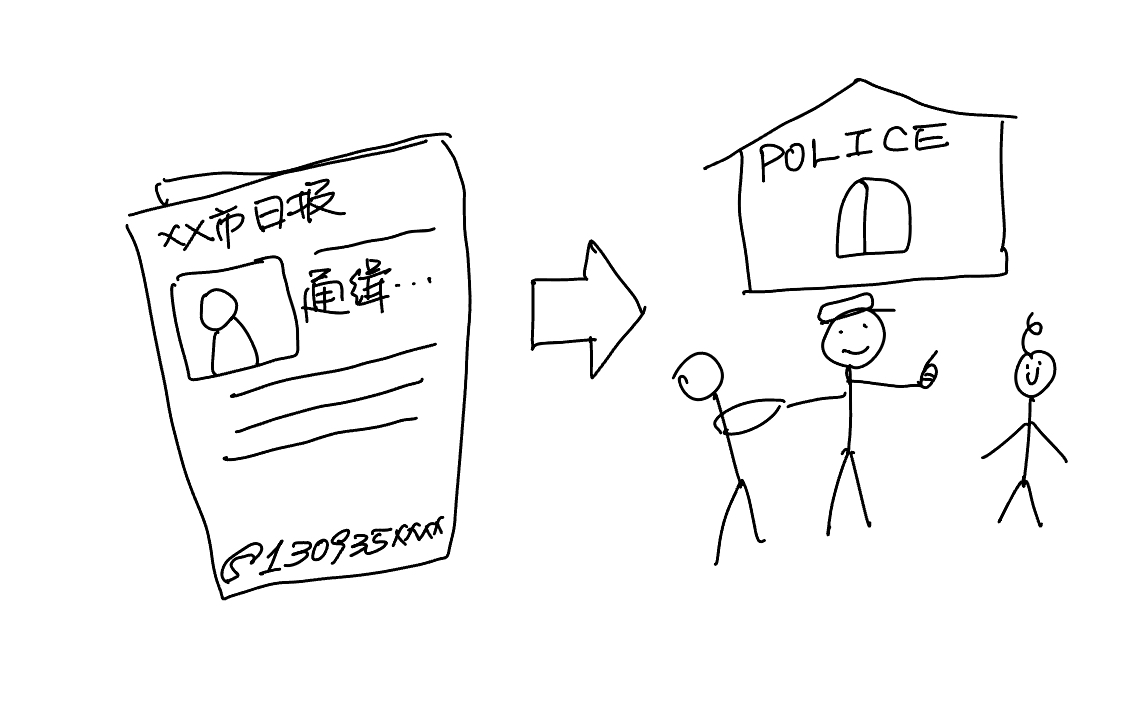 XX市日报
通缉...
130935xxxx
POLICE